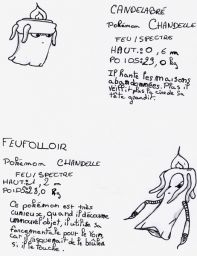 CANDELABRE
Pokémon CHANDELLE
FEU/SPECTRE
HAUT: 0,6 m
POIDS: 29,0 Kg
IP Hante les maisons
abandonnées. Plus il
vieillit plus la cire de sa
tête grandit.
FEUFOLLOIR
Pokémon CHANDELLE
FEU/SPECTRE
HAUT: 1,2 m
POIDS: 23,0 Kg
Ce pokémon est très
curieux, quand il découvre
un nouvel objet, il utilise sa
force mentale pour le voir
car il risquerait de le brûler
s'il le touche.